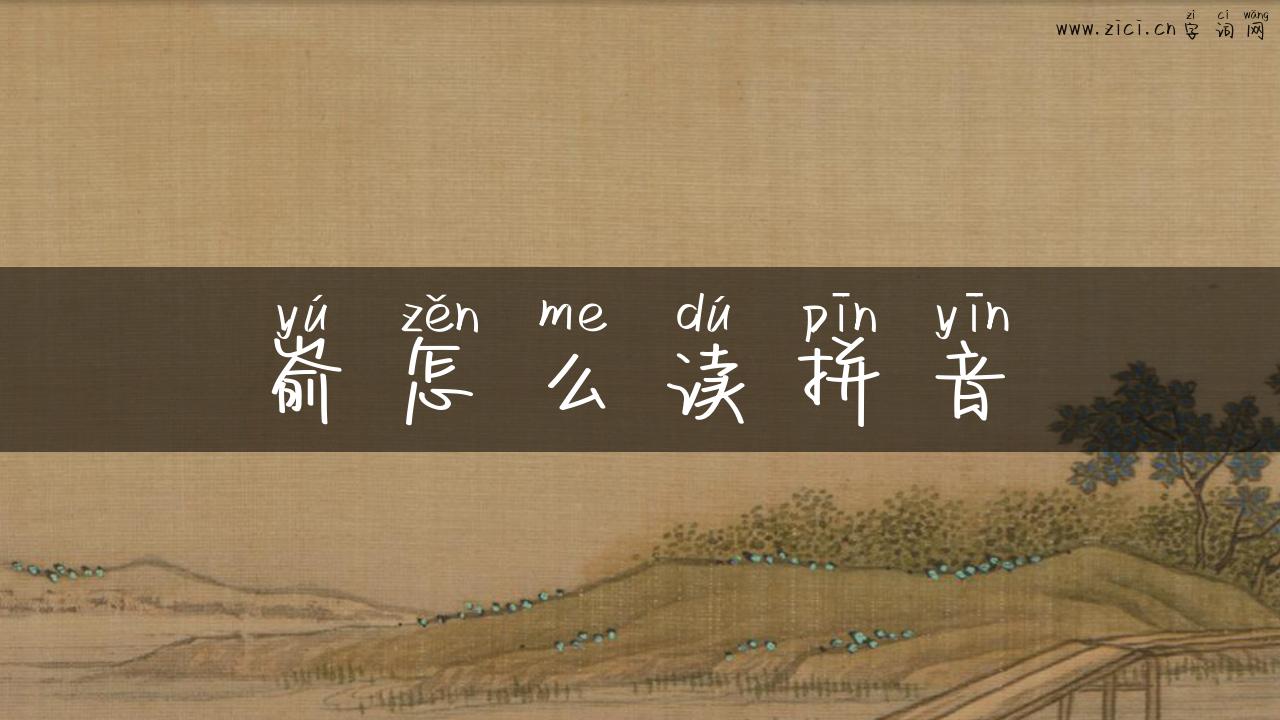 zì cí wǎng
www.zici.cn字词网
yú zěn me dú pīn yīn
嵛怎么读拼音